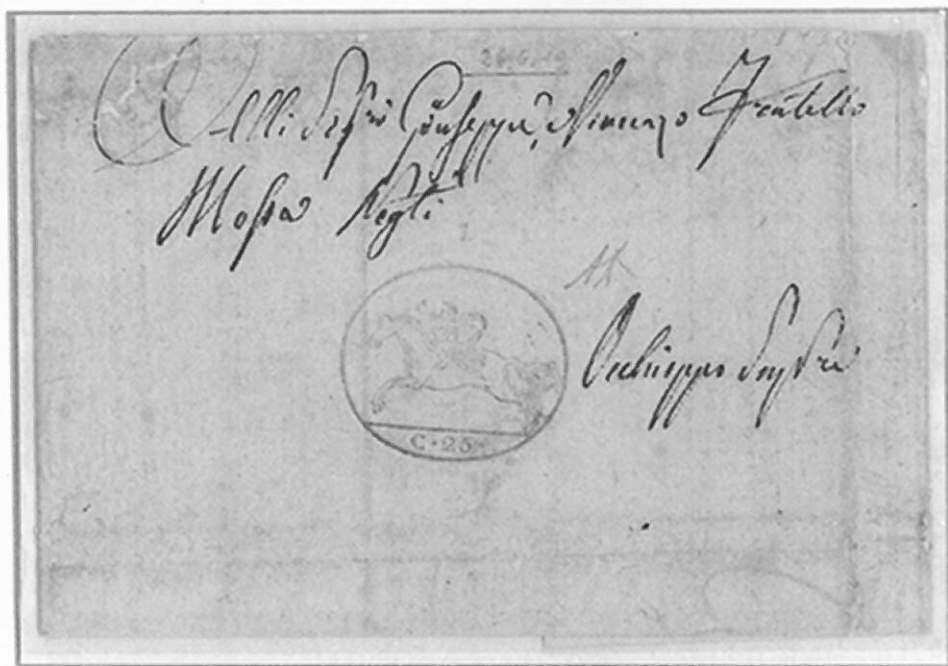 Alli Sig.ri Giuseppe, e Vincenzo Fratelli
Mosca Negti
Occhieppo Superre
C. 25